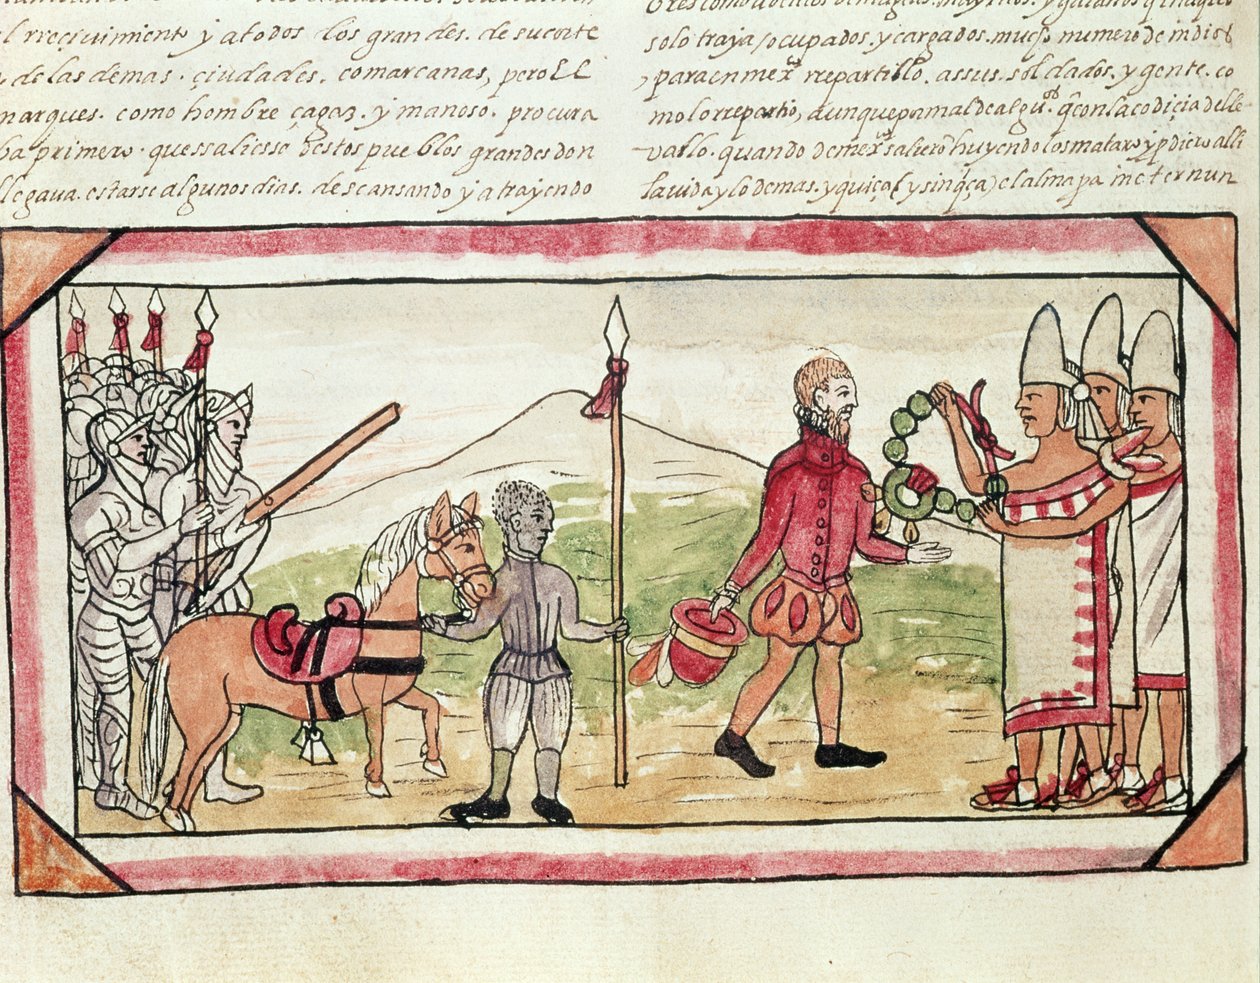 l rreçiuimiento y a todos los grandes. de su corte
y de las demas. çiudades. comarcanas, pero El
marques. como hombre çagaz. y manoso. procura
ba primero. que ssaliesse destos pueblos grandes don
llegava. estarse algunos dias. descansando y atrayendo
solo traya, ocupados. y cargados. mucho numero de indios
, para en mexco rrepartillo. assus. soldados. y gente. co
mo lo rrepartio, aunque por mal de algunos. q̃ con la codiçia de lle
vallo. quando de mexco saliero huyendo los mataro y pdiero alli
la vida y lo demas. y quiça (y sin q̃ça) el alma pa meter nun